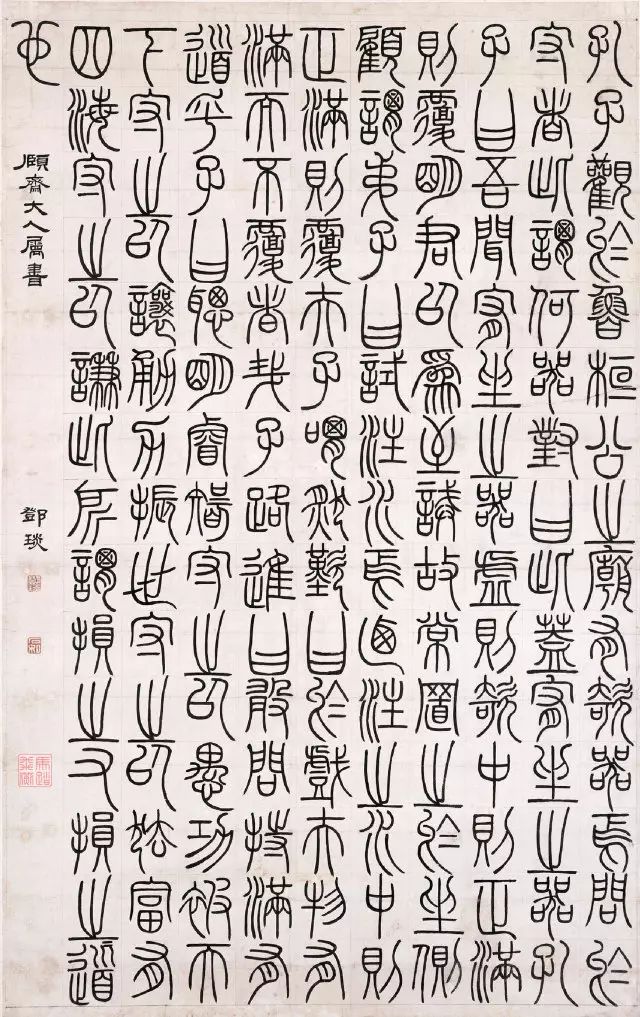 孔子觀於魯桓公之廟有欹器焉問於
守者此謂何器對曰此蓋宥坐之器孔
子曰吾聞宥坐之器虛則欹中則正滿
則覆明君以為至誡故常置之於坐側
顧謂弟子曰試注水焉迺注之水中則
正滿則覆夫子喟然歎曰於戲夫物有
滿而不覆者哉子路進曰敢問持滿有
道乎子曰聰明睿智守之以愚功被天
下守之以讓勇力振世守之以怯富有
四海守之以謙此所謂損之又損之道
也
頤齋大人屬書 鄧琰